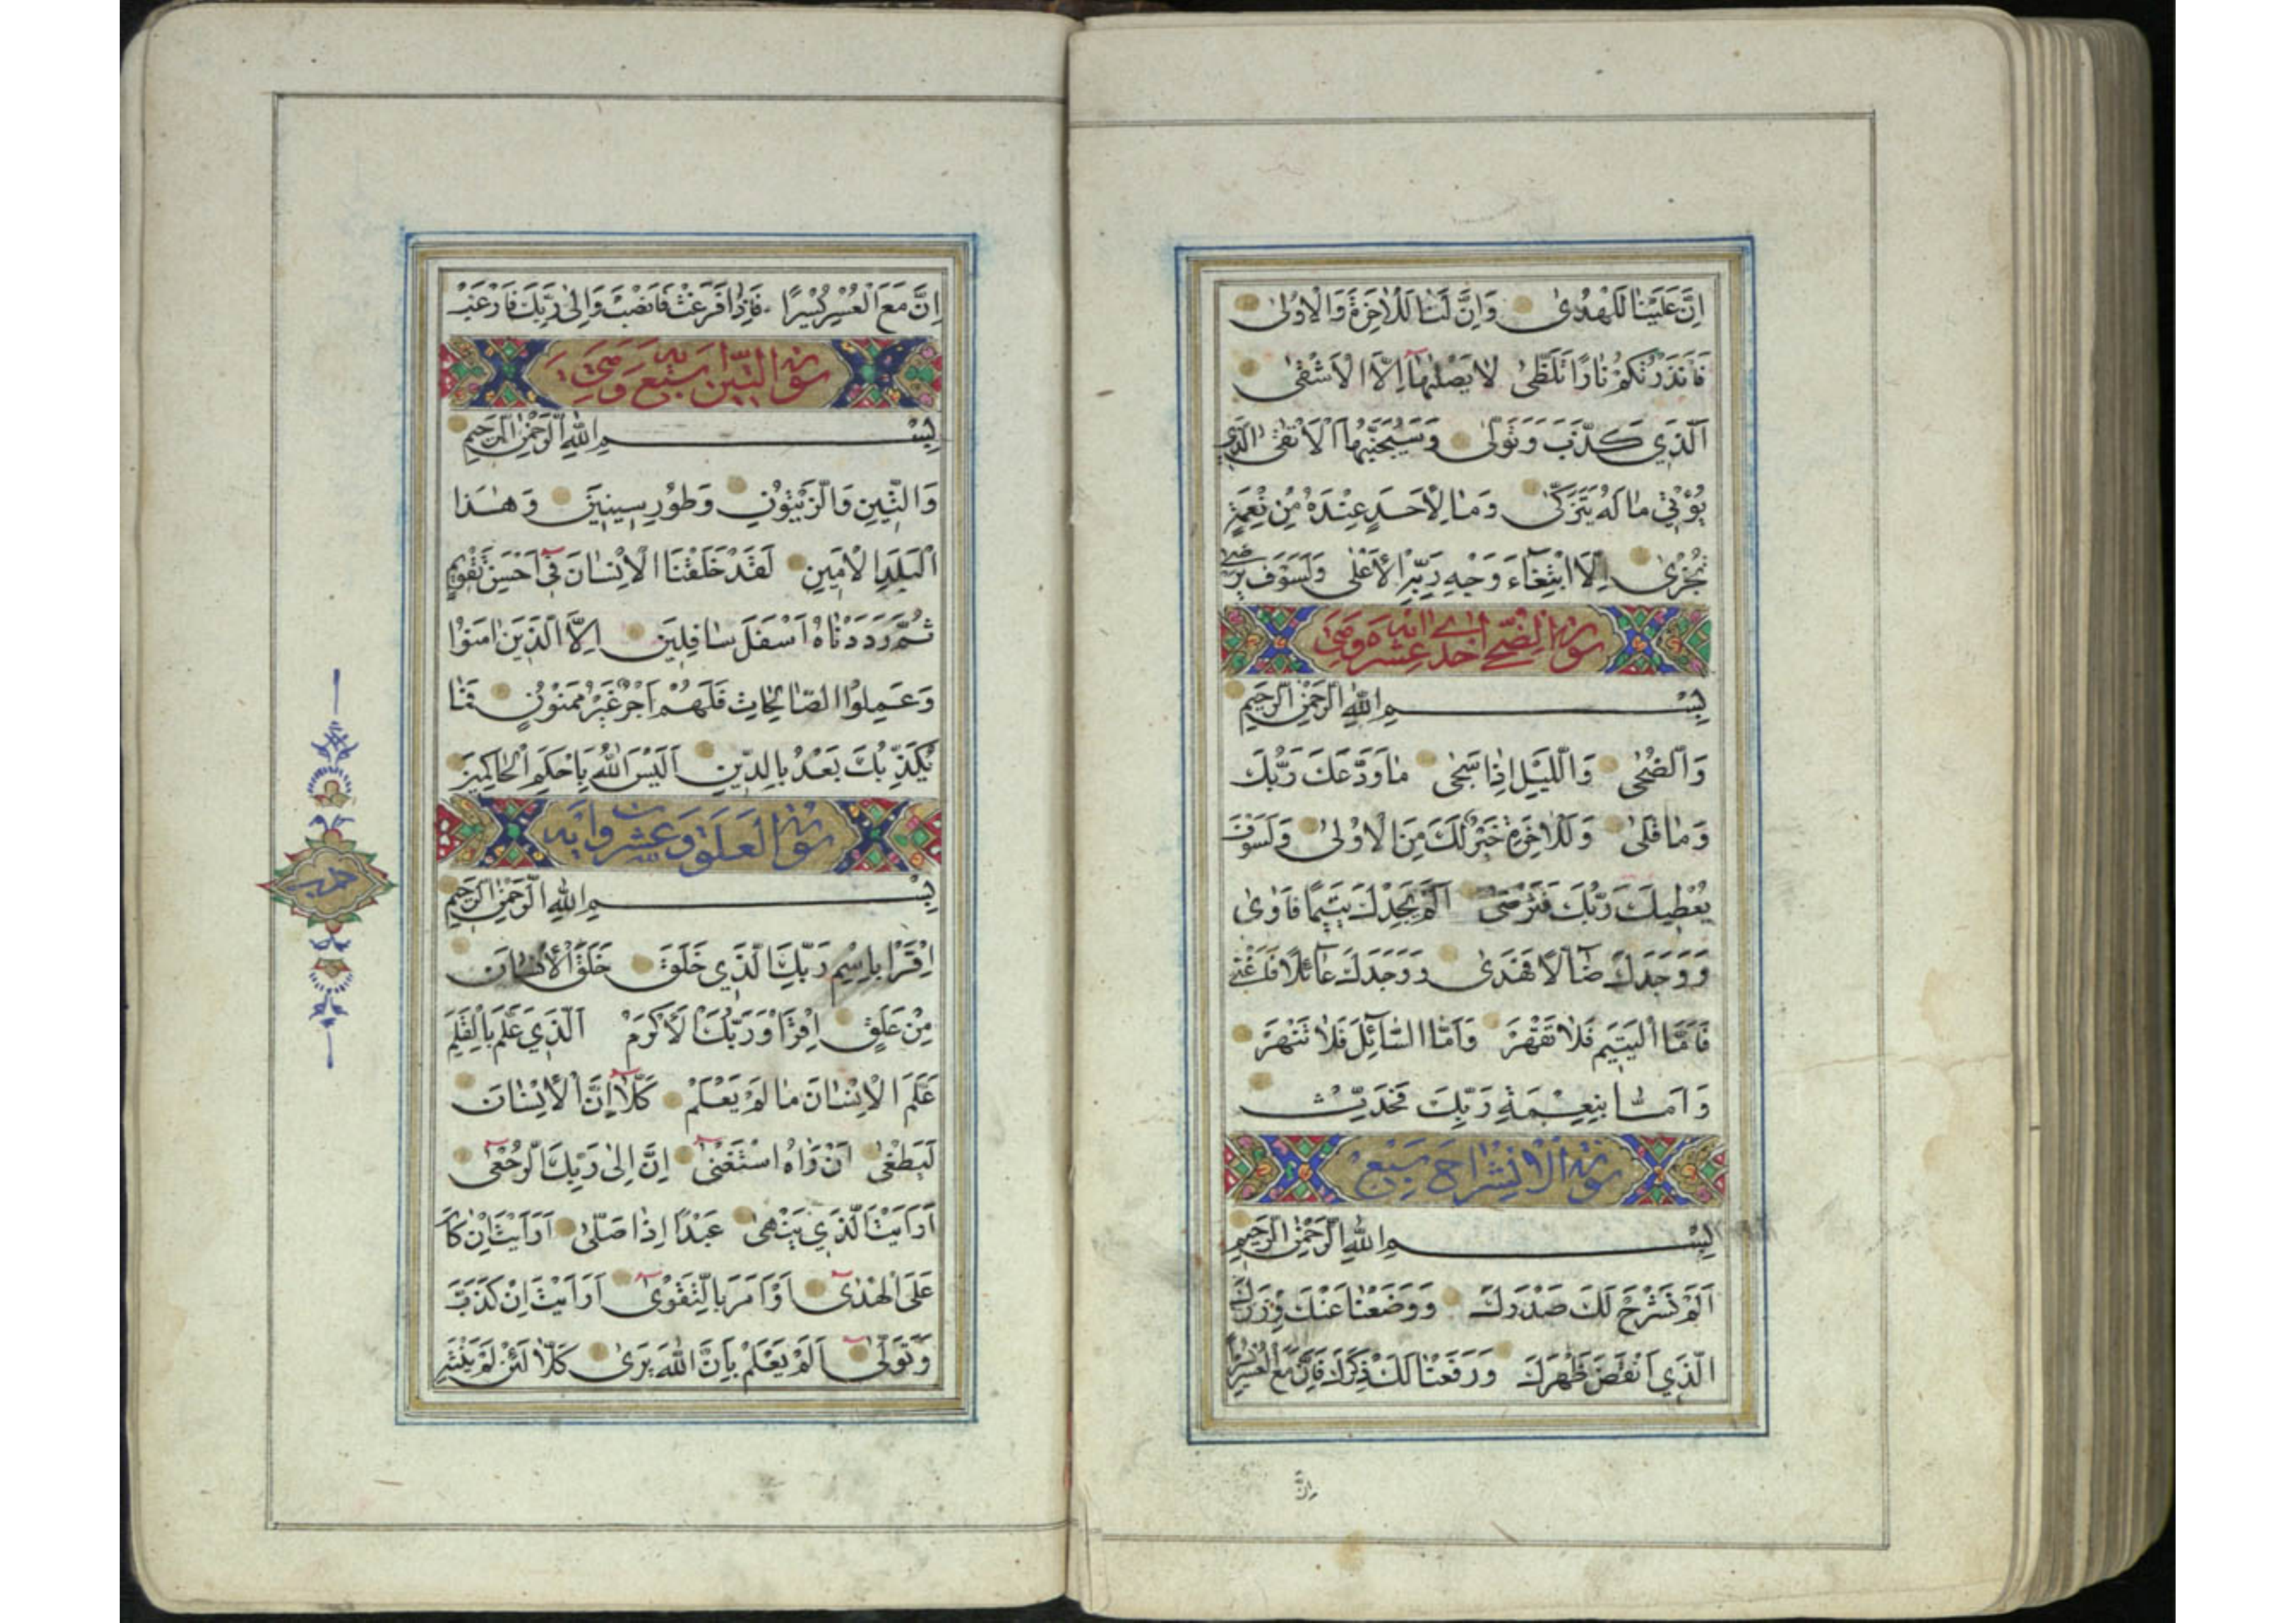 اِنَّ عَلَيْنٰا لَلْهُدىٰ وَاِنَّ لَنٰا لَلْاٰخِرَةَ وَالْاوُلىٰ
فَاَنْذَرْتُكُمْ نٰارًا تَلَظّىٰ لٰا يَصْلٰيهٰٓا اِلَّا الْاَشْقٰى
اَلَّذِي كَذَّبَ وَتَوَلّىٰ وَسَيُجَنَّبُهَا الْاَتْقٰى الَّذِي
يُؤْتِي مٰا لَهُ يَتَزَكّىٰ وَمٰا لِاَحَدٍ عِنْدَهُ مِنْ نِعْمَةٍ
تُجْزىٰ اِلَّا ابْتِغٰٓاءَ وَجْهِ رَبِّهِ الْاَعْلٰى وَلَسَوْفَ يَرْضىٰ
سورة الضحى احدى عشرة اية وهي
بِسْمِ اللهِ الرَّحْمٰنِ الرَّحِيمِ
وَالضُّحٰى وَاللَّيْلِ اِذٰا سَجٰى مٰا وَدَّعَكَ رَبُّكَ
وَمٰا قَلىٰ وَلَلْاٰخِرَةُ خَيْرٌ لَكَ مِنَ الْاوُلىٰ وَلَسَوْفَ
يُعْطِيكَ رَبُّكَ فَتَرْضىٰ اَلَمْ يَجِدْكَ يَتِيمًا فَاٰوىٰ
وَوَجَدَكَ ضٰٓالًّا فَهَدىٰ وَوَجَدَكَ عٰٓائِلًا فَاَغْنىٰ
فَاَمَّا الْيَتِيمَ فَلٰا تَقْهَرْ وَاَمَّا السّٰٓائِلَ فَلٰا تَنْهَرْ
وَاَمّٰا بِنِعْمَةِ رَبِّكَ فَحَدِّثْ
سورة الانشراح سبع
بِسْمِ اللهِ الرَّحْمٰنِ الرَّحِيمِ
اَلَمْ نَشْرَحْ لَكَ صَدْرَكَ وَوَضَعْنٰا عَنْكَ وِزْرَكَ
الَّذِي اَنْقَضَ ظَهْرَكَ وَرَفَعْنٰا لَكَ ذِكْرَكَ فَاِنَّ مَعَ الْعُسْرِ يُسْرًا
اِنَّ
اِنَّ مَعَ الْعُسْرِ يُسْرًا فَاِذٰا فَرَغْتَ فَانْصَبْ وَاِلىٰ رَبِّكَ فَارْغَبْ
سورة التين سبع اية وهي
بِسْمِ اللهِ الرَّحْمٰنِ الرَّحِيمِ
وَالتِّينِ وَالزَّيْتُونِ وَطُورِ سِينِينَ وَهٰذَا
الْبَلَدِ الْاَمِينِ لَقَدْ خَلَقْنَا الْاِنْسٰانَ فِٓي اَحْسَنِ تَقْوِيمٍ
ثُمَّ رَدَدْنٰاهُ اَسْفَلَ سٰافِلِينَ اِلَّا الَّذِينَ اٰمَنُوا
وَعَمِلُوا الصّٰالِحٰاتِ فَلَهُمْ اَجْرٌ غَيْرُ مَمْنُونٍ فَمٰا
يُكَذِّبُكَ بَعْدُ بِالدِّينِ اَلَيْسَ اللهُ بِاَحْكَمِ الْحٰاكِمِينَ
سورة العلق وعشرو اية
بِسْمِ اللهِ الرَّحْمٰنِ الرَّحِيمِ
اِقْرَاْ بِاسْمِ رَبِّكَ الَّذِي خَلَقَ خَلَقَ الْاِنْسٰانَ
مِنْ عَلَقٍ اِقْرَاْ وَرَبُّكَ الْاَكْرَمُ اَلَّذِي عَلَّمَ بِالْقَلَمِ
عَلَّمَ الْاِنْسٰانَ مٰا لَمْ يَعْلَمْ كَلّٰٓا اِنَّ الْاِنْسٰانَ
لَيَطْغىٰٓ اَنْ رَاٰهُ اسْتَغْنىٰ اِنَّ اِلىٰ رَبِّكَ الرُّجْعٰى
اَرَاَيْتَ الَّذِي يَنْهىٰ عَبْدًا اِذٰا صَلّىٰ اَرَاَيْتَ اِنْ كٰانَ
عَلَى الْهُدىٰٓ اَوْ اَمَرَ بِالتَّقْوىٰ اَرَاَيْتَ اِنْ كَذَّبَ
وَتَوَلّىٰٓ اَلَمْ يَعْلَمْ بِاَنَّ اللهَ يَرىٰ كَلّٰا لَئِنْ لَمْ يَنْتَهِ
حزب